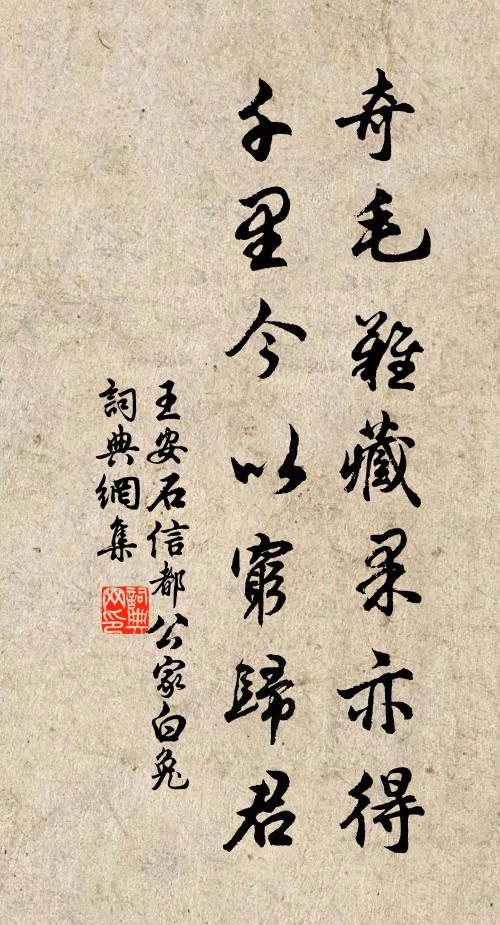 奇毛難藏果亦得
千里今以窮歸君
王安石信都公家白兔
詞典網集
詞典網印